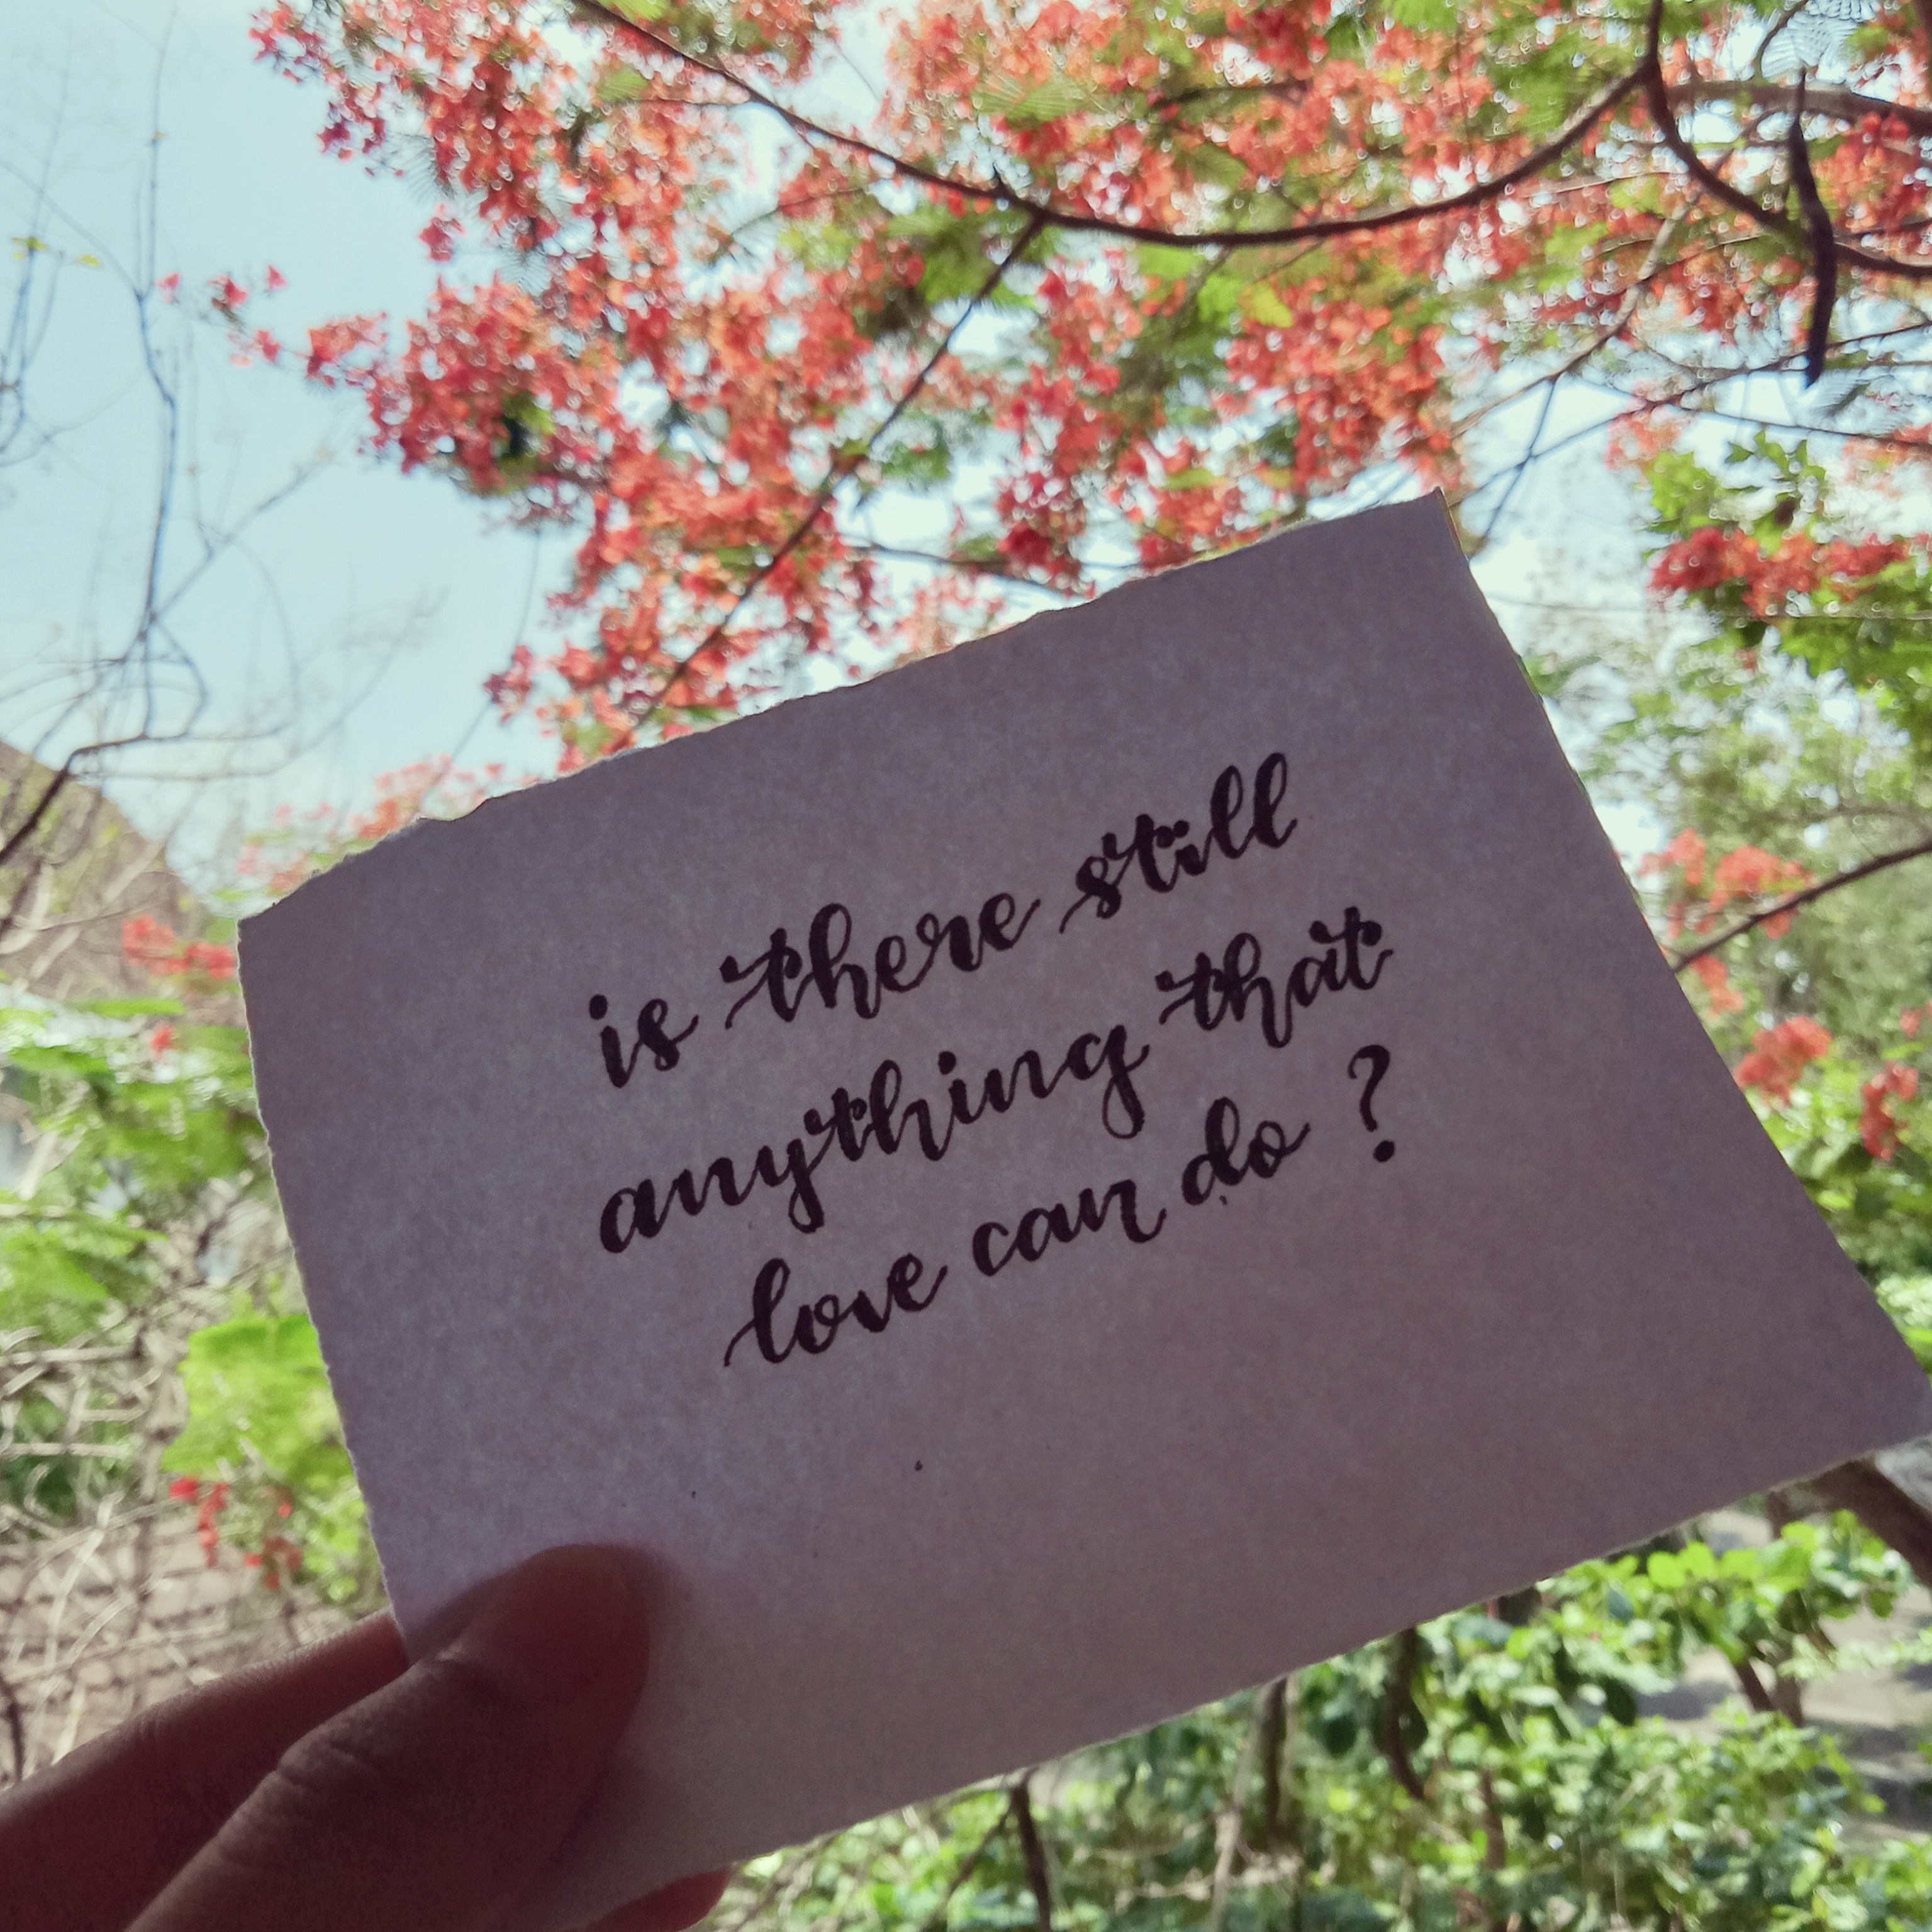 is there still
anything that
love can do ?